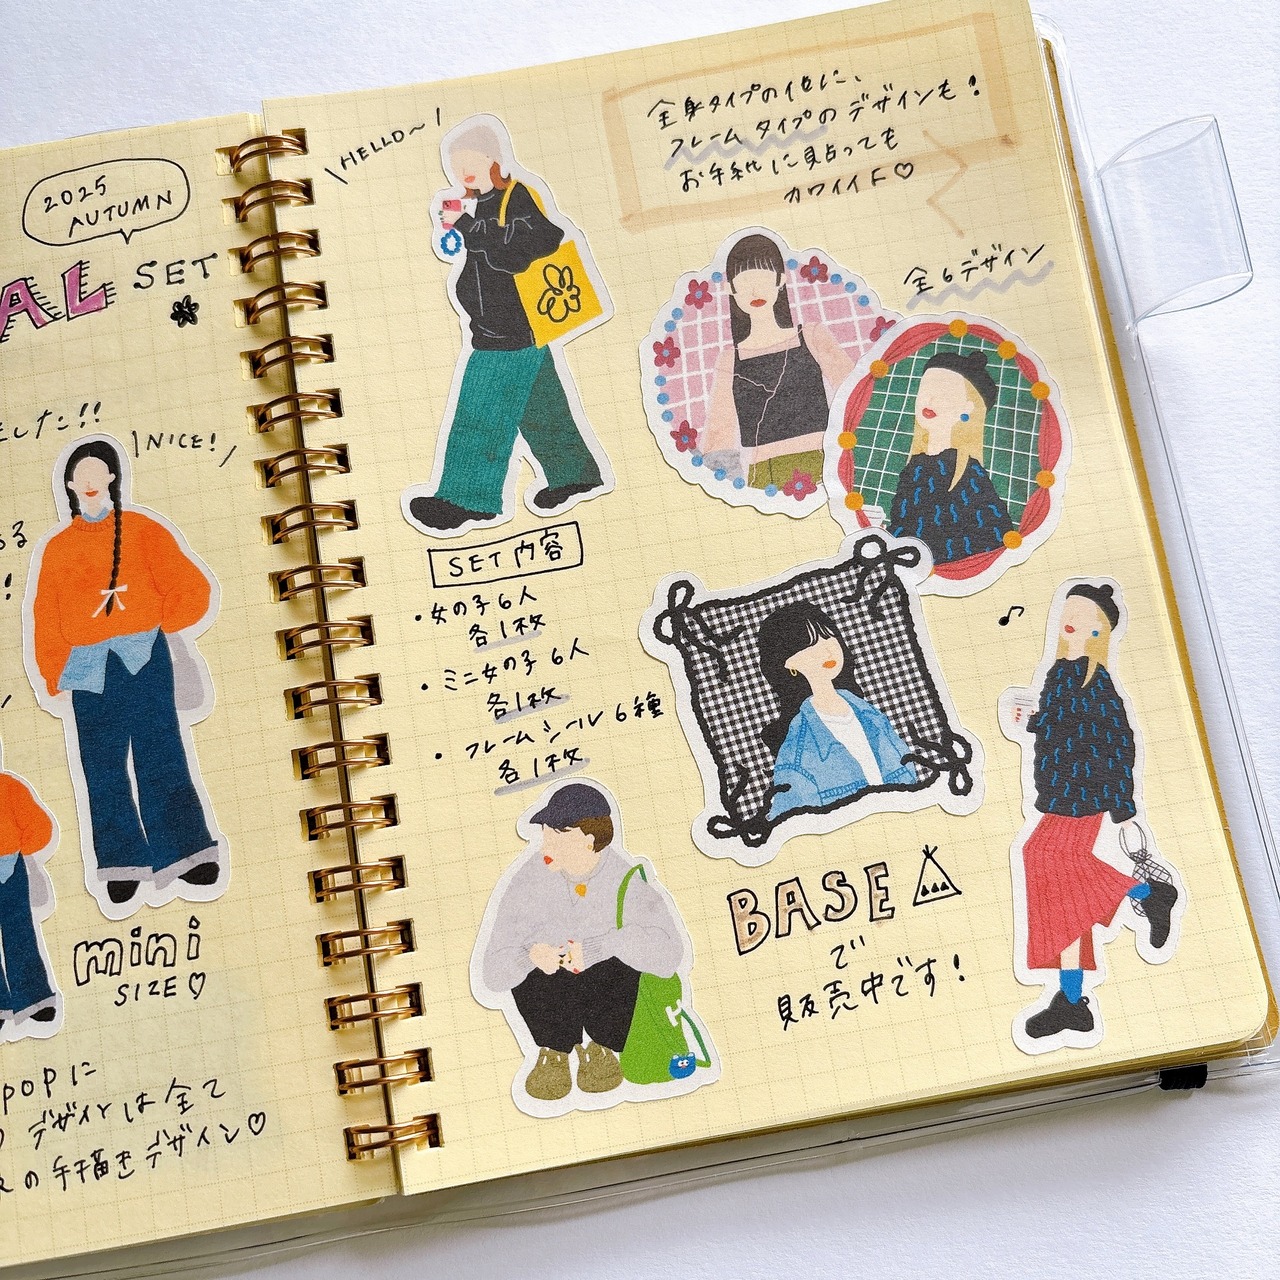 2025
AUTUMN
AL SET
した!!
NICE!
る
!
mini
SIZE♡
popに
デザインは全て
の手描きデザイン♡
HELLO~!
全身タイプの他に、
フレームタイプのデザインも!
お手紙に貼っても
カワイイヨ♡
全6デザイン
SET内容
・女の子6人
各1枚
・ミニ女の子6人
各1枚
・フレームシール6種
各1枚
♪
BASE
で
販売中です!